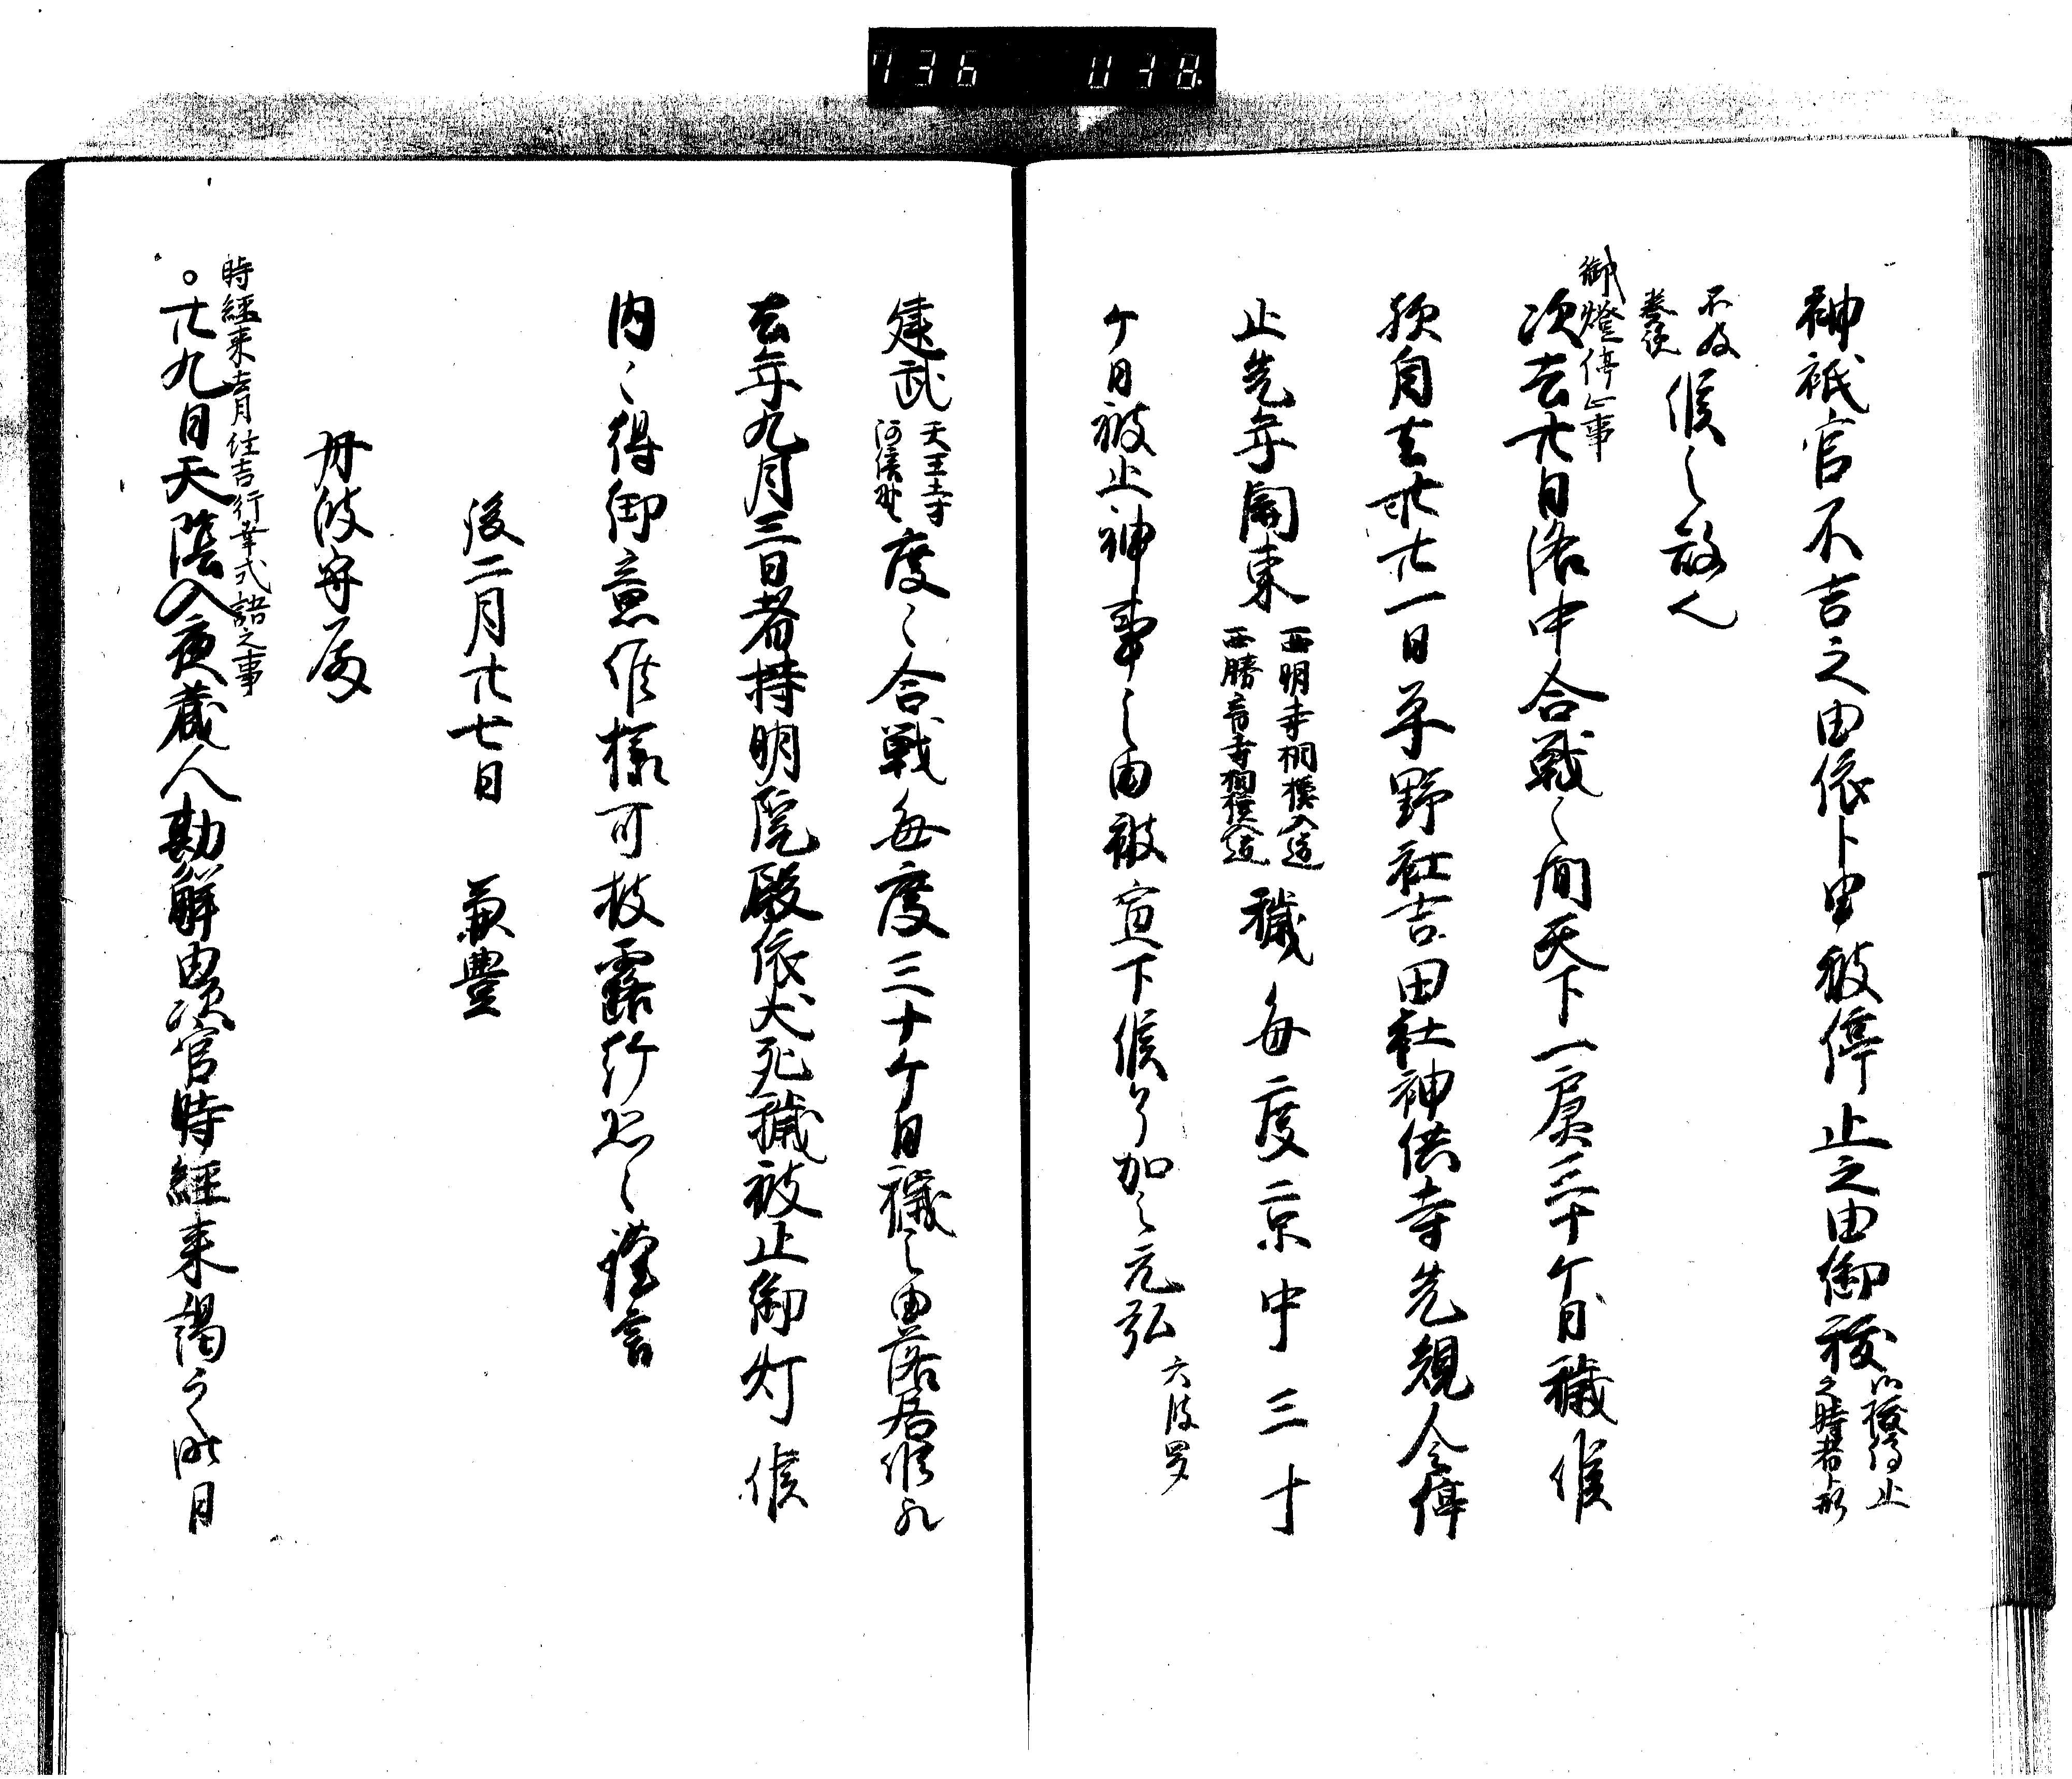 736 038
神祇官不吉之由依卜申被停止之由御禊以禊停止之時者
不及
候之故也
御燈停止事
次去廿日洛中合戦之間天下一同三十ケ日穢候
去廿一日平野社吉田社神供等先規令停
止先年関東西明寺相模入道西勝寺相模入道穢毎度京中三十
ケ日被止神事之由被宣下候了加之元弘六波羅
建武天王寺河俣野度々合戦毎度三十ケ日穢之由落居候
去年九月三日者持明院殿依犬死穢被止御灯候
内々得御意候様可披露行恐々謹言
後二月廿七日　兼豊
丹波守殿
時経来去月住吉行幸式語之事
○廿九日天陰入夜蔵人勘解由次官時経来謁之昨日